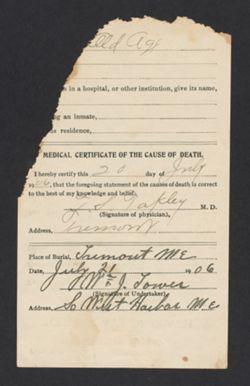 Old Age
in a hospital, or other institution, give its name,
ng an inmate,
e residence,
MEDICAL CERTIFICATE OF THE CAUSE OF DEATH.
I hereby certify this 20 day of July
1906, that the foregoing statement of the causes of death is correct
to the best of my knowledge and belief.
M. D.
(Signature of physician),
Address, Tremont
Place of Burial, Tremont Me
Date, July 21 1906
Wm J. Tower
(Signature of Undertaker)
Address, So West Harbor Me